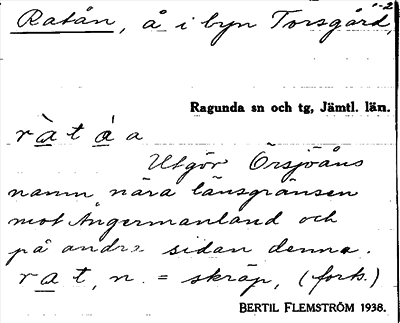 Ratån, å i byn Torsgård, 1-2
Ragunda sn och tg, Jämtl. län.
ràtáa
Utgör Örsjöåns
namn nära länsgränsen
mot Ångermanland och
på andra sidan denna.
rat, n. = skräp, (forts.)
BERTIL FLEMSTRÖM 1938.